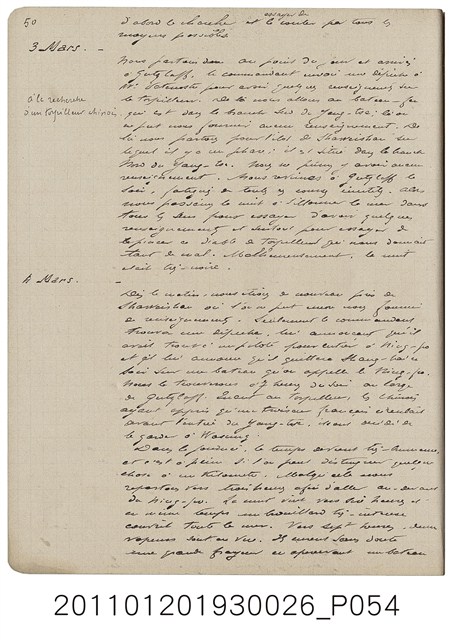 50
d'abord le chercher et essayer de le couler par tous les
moyens possibles
3 Mars. -
Nous partons donc au point du jour et arrivés
à Gutzlaff, le commandant envoie une dépêche à
Mr Patenotre pour avoir quelques renseignements sur
le torpilleur. De là nous allons au bateau-feu
à la recherche
d'un torpilleur chinois
qui est dans la branche Sud du Yang-tsé; là on
ne put nous fournir aucun renseignement. De
là nous partons pour l'îlot de Shaweishan sur
lequel il y a un phare; il est situé dans la branche
Nord du Yang-tse. Nous ne pûmes y avoir aucun
renseignement. Nous revînmes à Gutzlaff le
soir, fatigués de toutes ces courses inutiles. Alors
nous passâmes la nuit à sillonner la mer dans
tous les sens pour essayer d'avoir quelques
renseignements et surtout pour essayer de
le pincer ce diable de torpilleur qui nous donnait
tant de mal. Malheureusement, la nuit
était très-noire.
4 Mars. -
Dès le matin, nous étions de nouveau près de
Shaweishan où l'on ne put rien nous fournir
de renseignements. Seulement le commandant
trouva une dépêche lui annonçant qu'il
avait trouvé un pilote pour entrer à Ning-po
et qu'il lui annonce qu'il quittera Shang-haï ce
soir sur un bateau qu'on appelle le Ning-po.
Nous le trouverons à 7 heures du soir au large
de Gutzlaff. Quant au torpilleur, les chinois
ayant appris qu'un croiseur français croisait
devant l'entrée du Yang-tsé, l'ont
de garde à Woosung.
Dans la journée, le temps devient très-brumeux,
et c'est à peine si on peut distinguer quelque
chose à un kilomètre. Malgré cela nous
repartons vers trois heures afin d'aller au-devant
du Ning-po. La nuit vint vers six heures et
en même temps un brouillard très-intense
couvrit toute la mer. Vers sept heures, deux
vapeurs sont en vue. Ils eurent sans doute
une grande frayeur en apercevant un bateau
201101201930026_P054